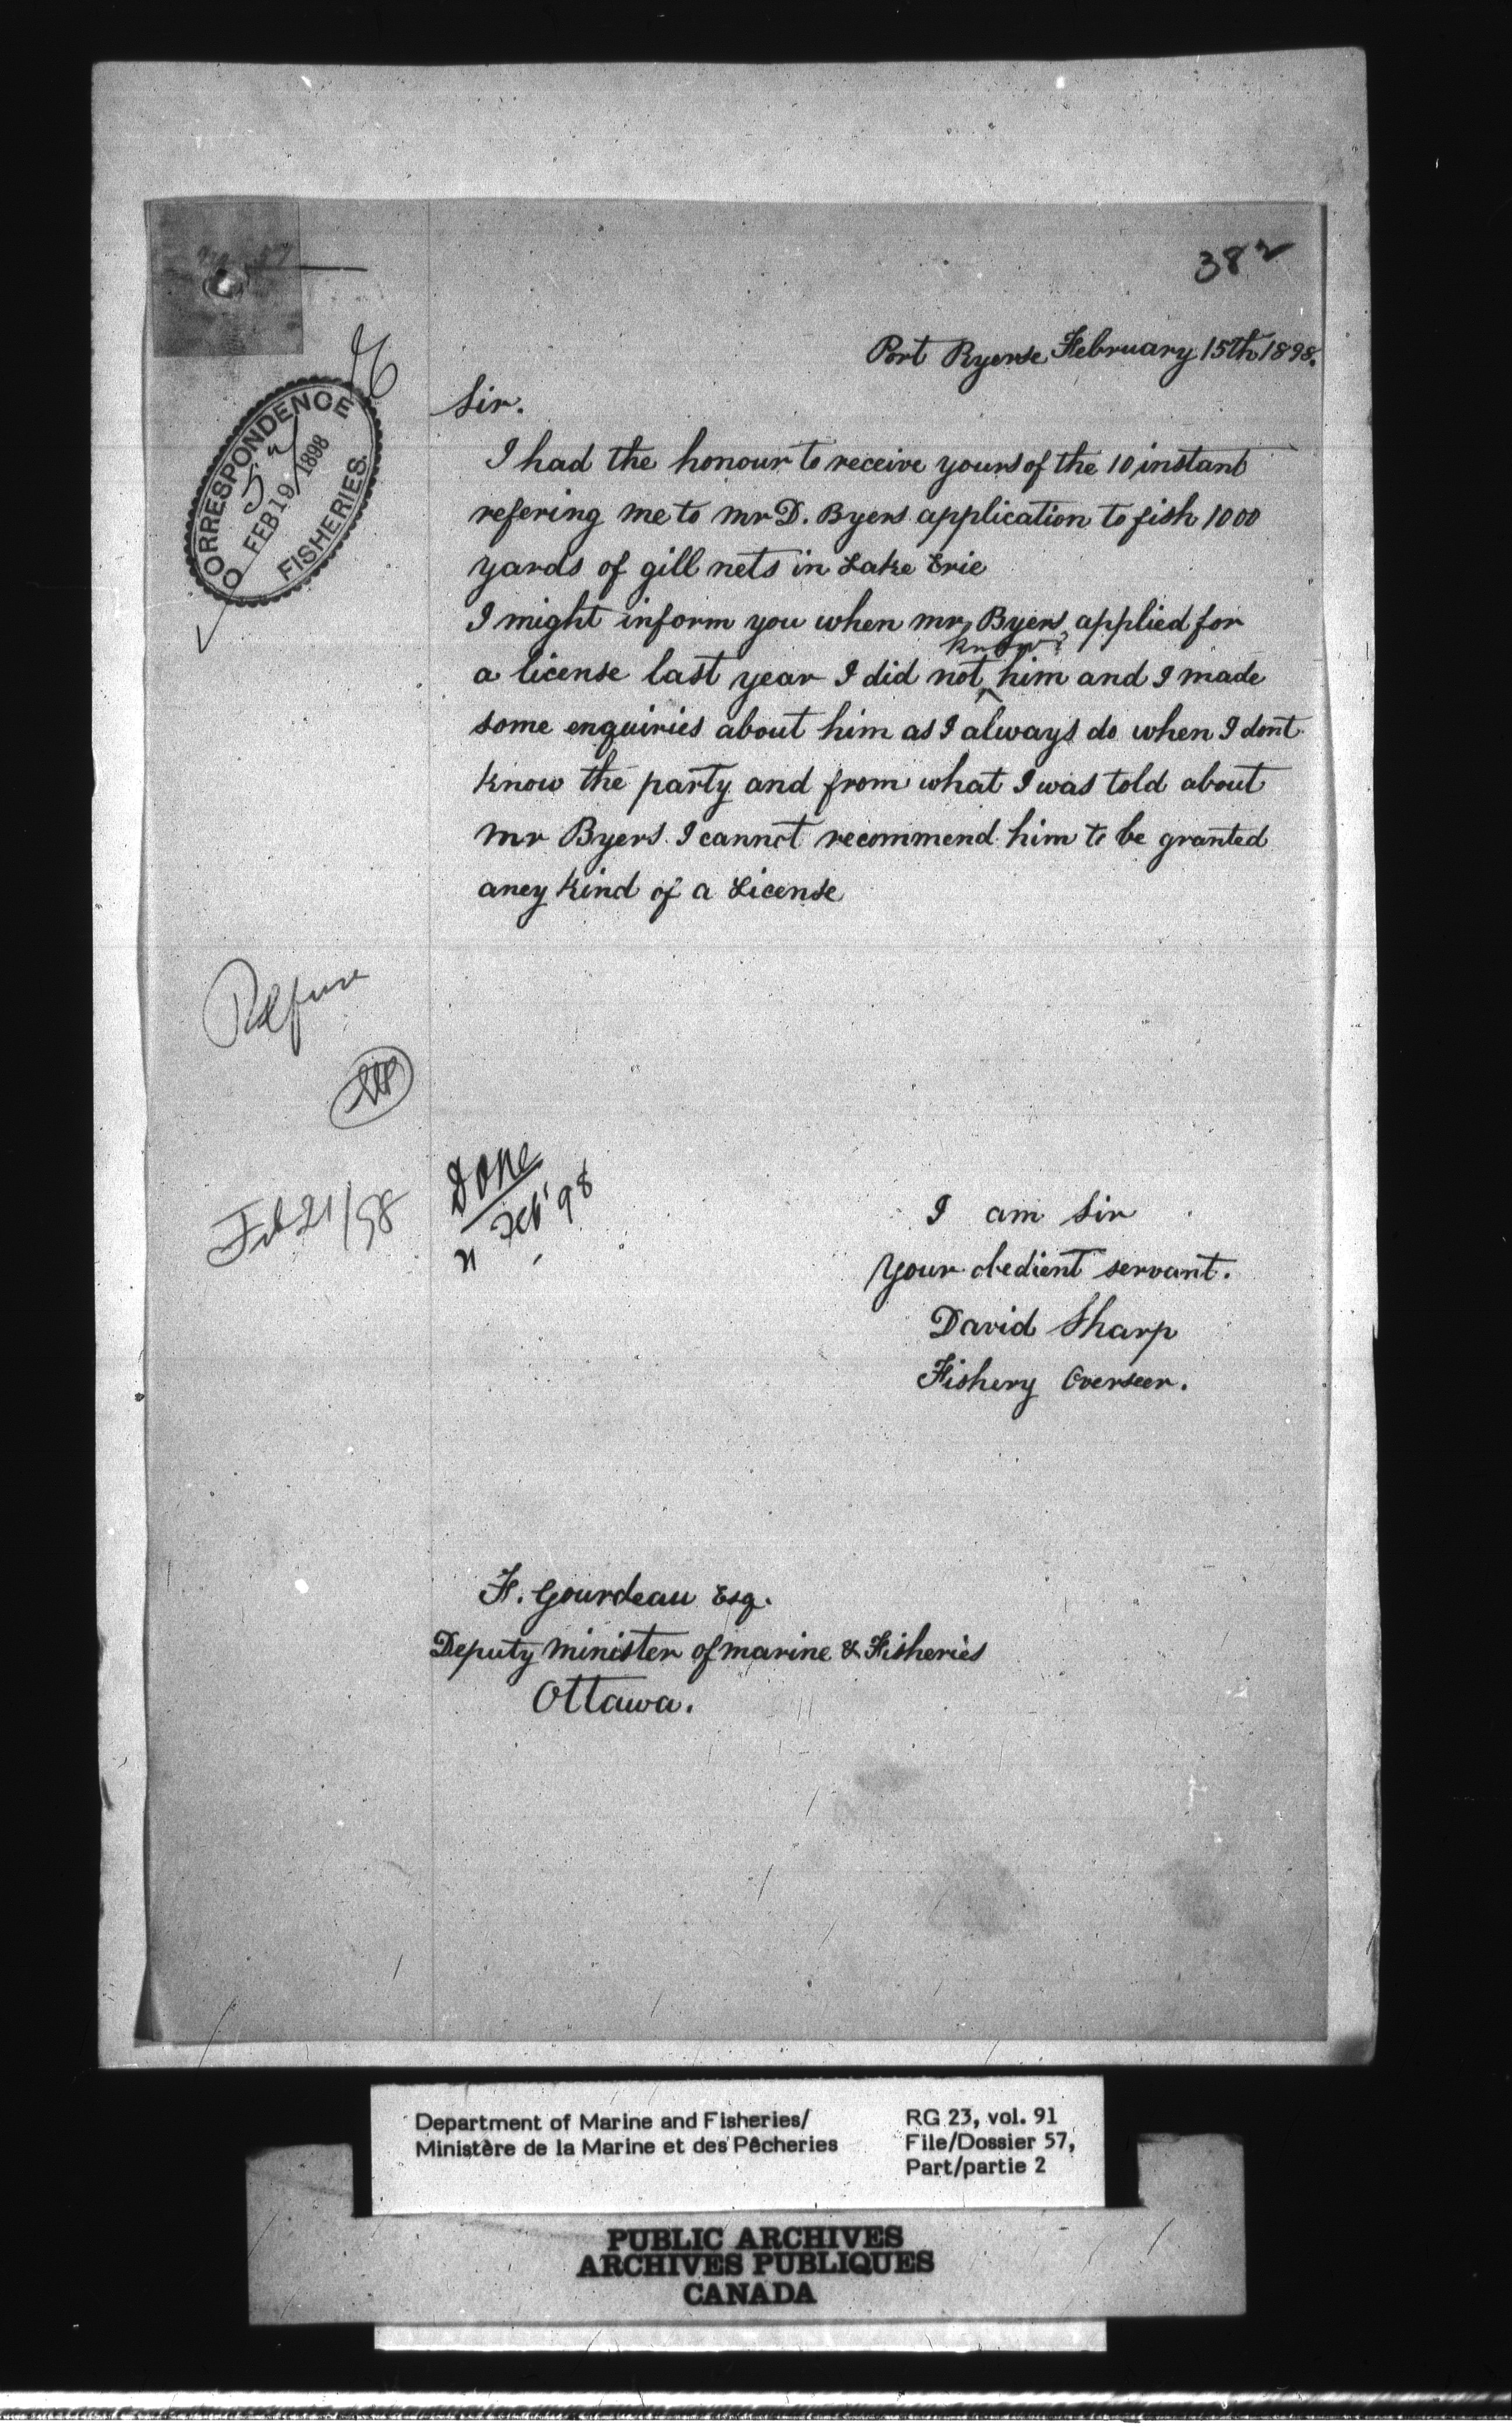 382
Port Ryerse February 15th 1898.
CORRESPONDENCE
57
FEB 19 1898
FISHERIES.
Sir.
I had the honour to receive yours of the 10 instant
refering me to mr D. Byers application to fish 1000
yards of gill nets in Lake Erie
I might inform you when mr, Byers applied for
a license last year I did not ^know him and I made
some enquiries about him as I always do when I dont
know the party and from what I was told about
mr Byers I cannot recommend him to be granted
aney kind of a License
Refuse
Feb 21/98
Done
21 Feb' 98
I am Sir
Your obedient servant.
David Sharp
Fishery Overseer.
F. Gourdeau Esq.
Deputy minister of marine & Fisheries
Ottawa.
Department of Marine and Fisheries/
Ministère de la Marine et des Pêcheries
RG 23, vol. 91
File/Dossier 57,
Part/partie 2
PUBLIC ARCHIVES
ARCHIVES PUBLIQUES
CANADA